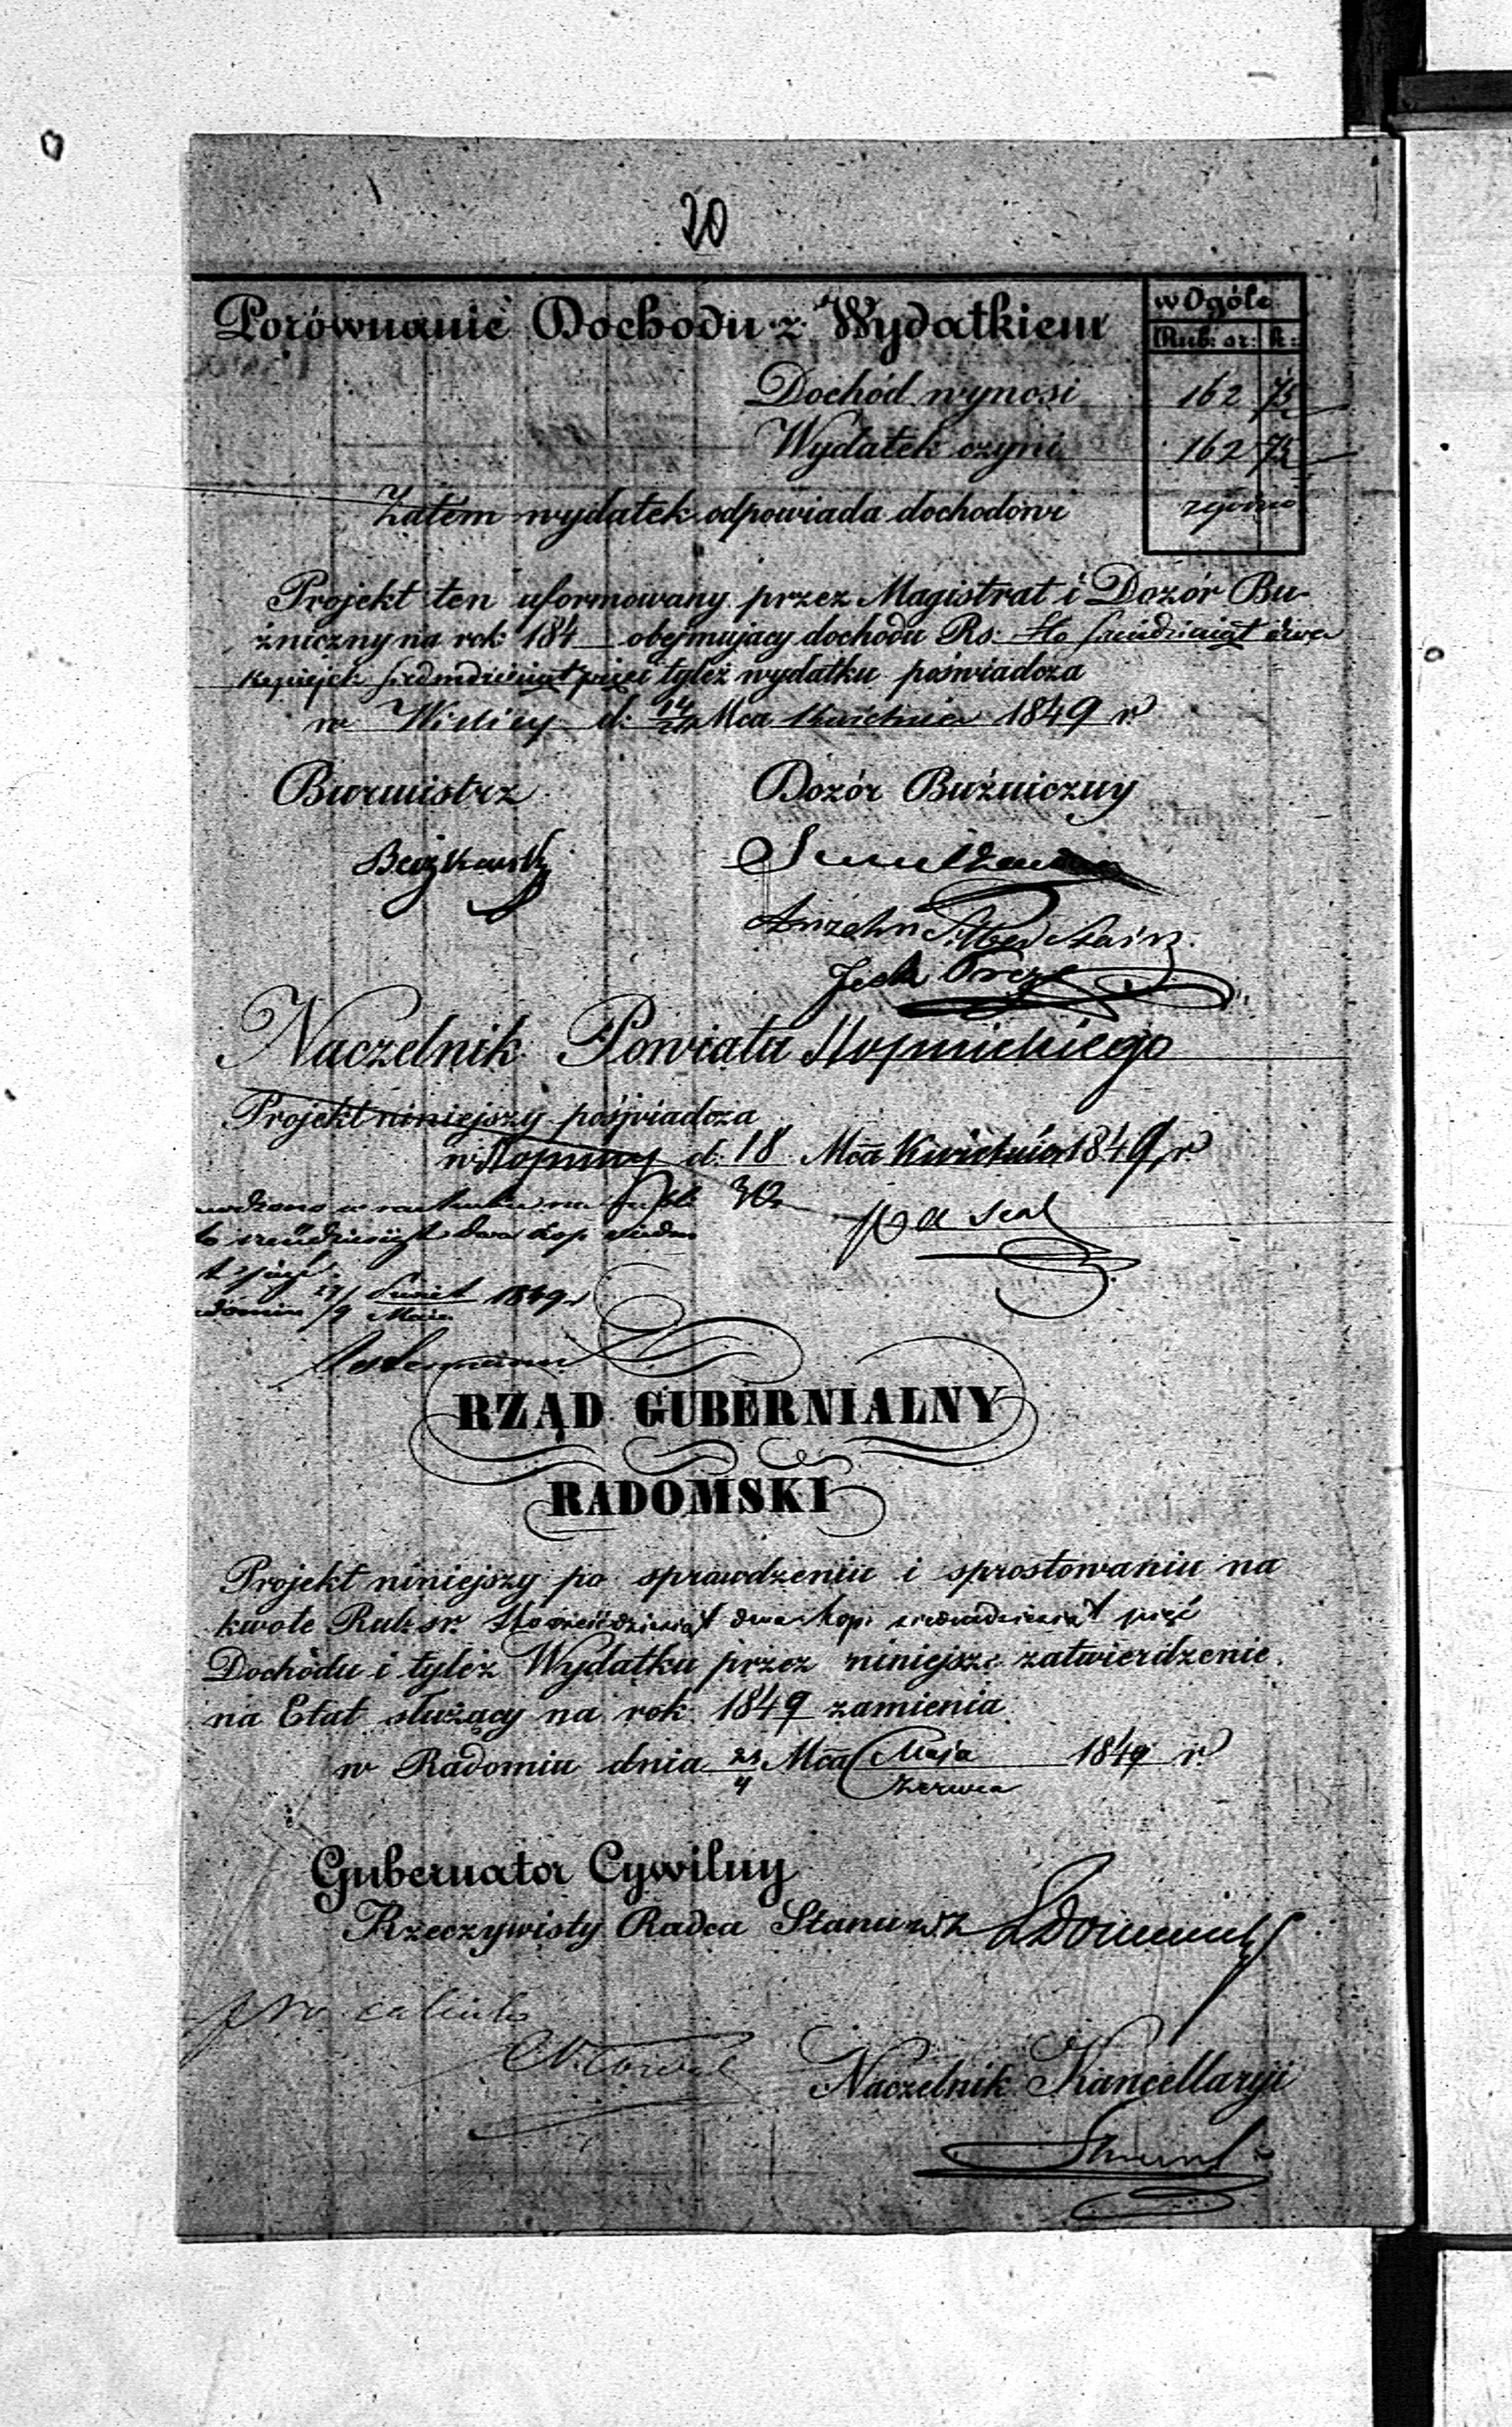 20
Porównanie Dochodu z Wydatkiem
w Ogóle
Rub: sr: k:
Dochód wynosi 162 75
Wydatek czyni 162 75
Zatem wydatek odpowiada dochodowi zgodno
Projekt ten uformowany przez Magistrat i Dozór Bu-
żniczny na rok 184 obejmujący dochodu Rs: Sto sześćdziesiąt dwa
Kopiejek siedmdziesiąt pięć i tyleż wydatku poświadcza
w Wiślicy d: Mca Kwietnia 1849 r
Burmistrz Dozór Bużniczny
Jesek
Naczelnik Powiatu Stopnickiego
Projekt niniejszy poświadcza
w Stopnicy d. 18 Mca Kwietnia 1849 r
30
sześćdziesiąt dwa kop. siedm
1849 r
Maja
RZĄD GUBERNIALNY
RADOMSKI
Projekt niniejszy po sprawdzeniu i sprostowaniu na
kwotę Rub. sr. Sto sześćdziesiąt dwa kop. siedmdziesiąt pięć
Dochodu i tyleż Wydatku przez niniejsze zatwierdzenie
na Etat służący na rok 1849 zamienia
w Radomiu dnia 23 Mca Maja 1849 r
4 Czerwca
Gubernator Cywilny
Rzeczywisty Radca Stanu
Naczelnik Kancellaryi